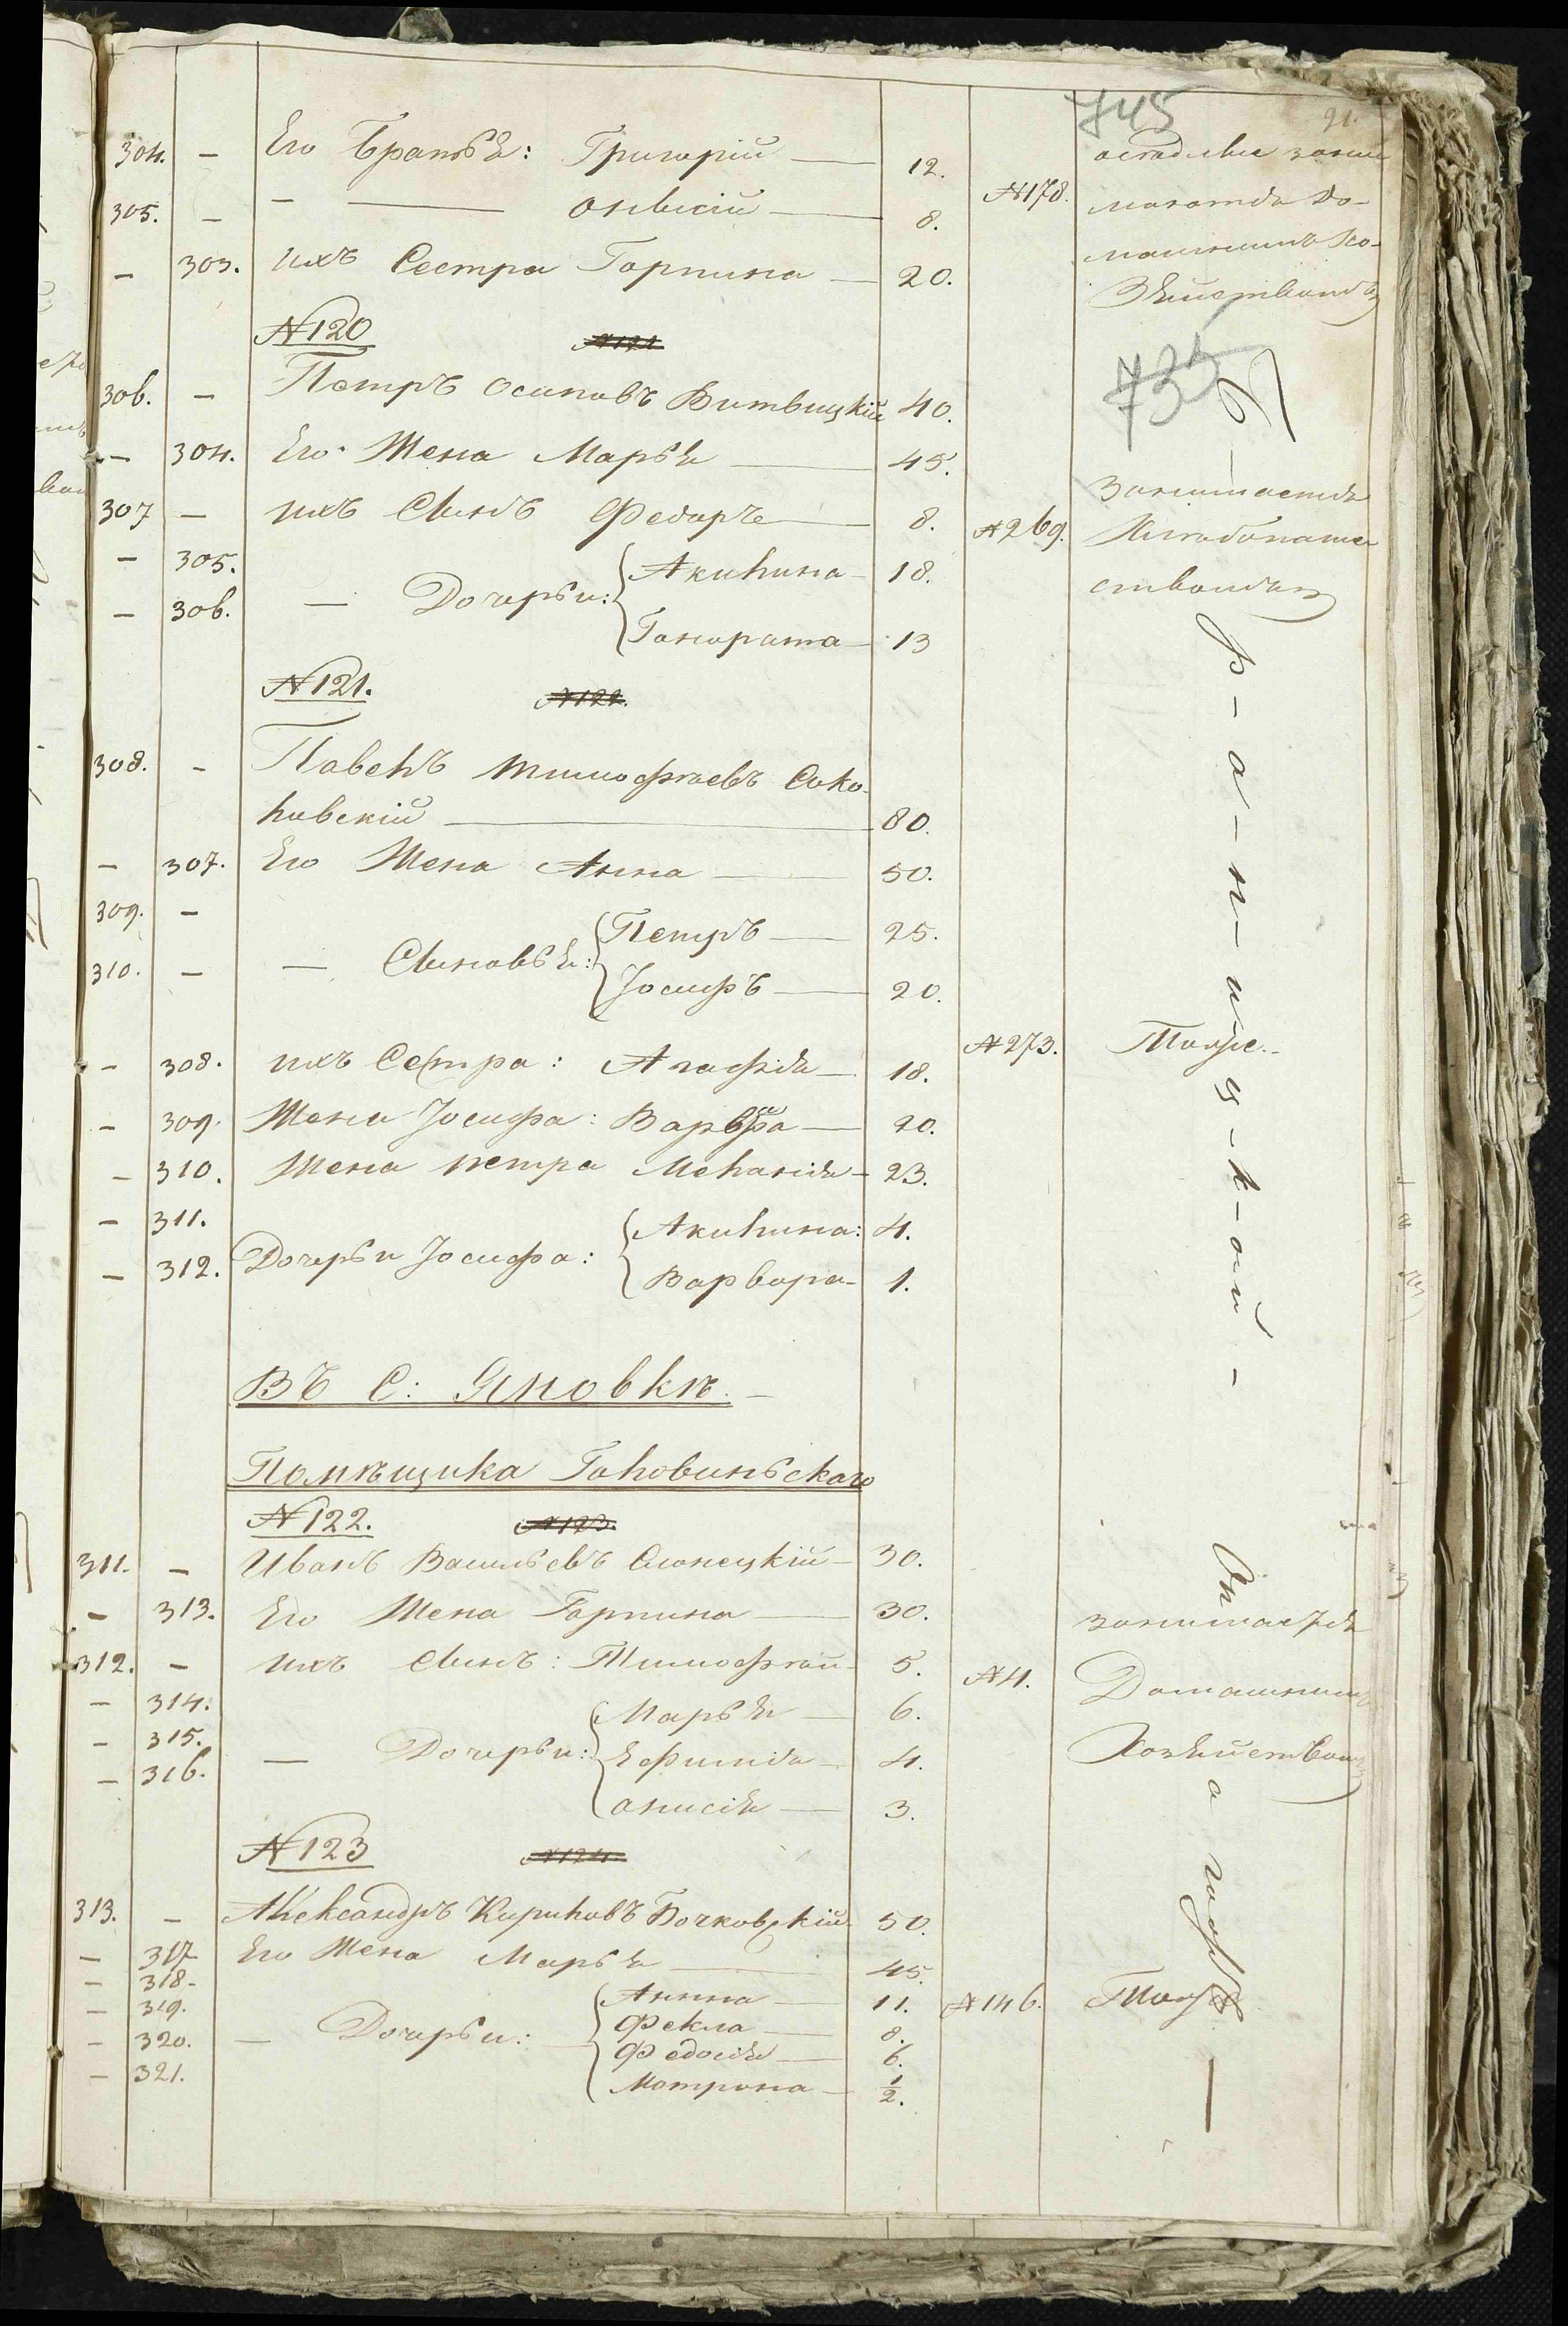 745
91.
304. — Его Братья: Григорій — 12.
305. — — Онисій — 8.
— 303. ихъ Сестра Горпина — 20.
№178.
занимаются До-
машнимъ Хо-
зяйствомъ
№120 №121
735
306. — Петръ Осиповъ Витвицкій 40.
— 304. Его Жена Марья — 45.
307 — ихъ Сынъ Федоръ — 8. №269.
Занимается
Хлебопаше
ствомъ
— 305. — Дочерьи: Акилина — 18.
— 306. Гонората — 13
№121. №122.
308. — Павелъ Тимофѣевъ Соко-
ловскій — 80.
— 307. Его Жена Анна — 50.
309. — — Сыновья: Петръ — 25.
310. — Іосифъ — 20.
— 308. ихъ Сестра: Агафія — 18. №273. Тоже.
— 309. Жена Іосифа: Варвара — 20.
— 310. Жена Петра Меланія — 23.
— 311. Дочерьи Іосифа: Акилина: 4.
— 312. Варвара — 1.
Въ С: Яновкѣ. —
Помѣщика Головиньскаго
№122. №123.
311. — Иванъ Васильевъ Слонецкій — 30.
— 313. Его Жена Горпина — 30.
312. — ихъ Сынъ: Тимофѣй — 5. №4.
занимается
Домашнимъ
Хозяйствомъ
— 314. — Дочерьи: Марья — 6.
— 315. Ефимія — 4.
— 316. Онисія — 3.
№123 №124.
313. — Александръ Кириловъ Бочковскій 50.
— 317 Его Жена Марья — 45.
— 318. — Дочерьи: Анна — 11. №146. Тоже
— 319. Фекла — 8.
— 320. Федосія — 6.
— 321. Мотрона — 1/2.